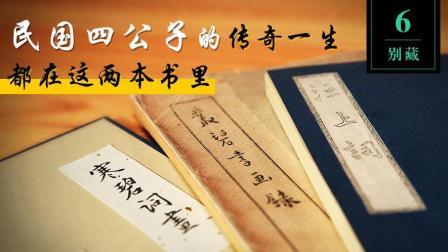 民国四公子的传奇一生
都在这两本书里
6
别藏
寒碧词画
丛碧书画录
江上词